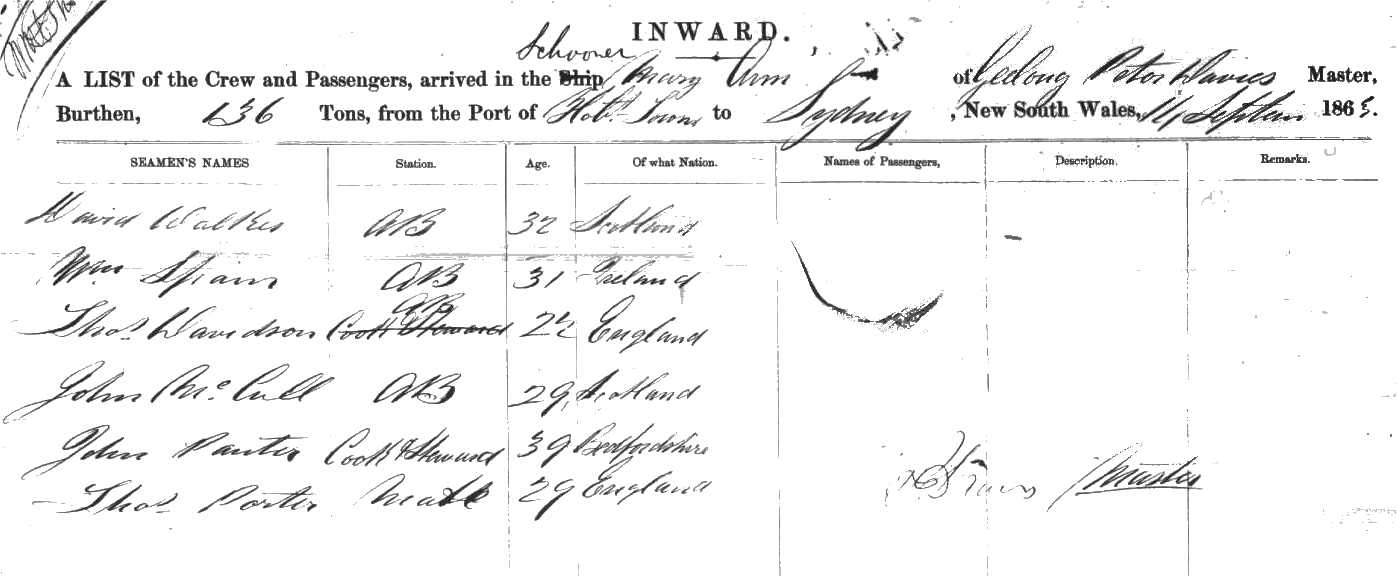 INWARD.
Schooner
A LIST of the Crew and Passengers, arrived in the Ship Mary Ann of Geelong Peter Davies Master,
Burthen, 136 Tons, from the Port of Hobt Town to Sydney, New South Wales, 14 Septem 1865.
SEAMEN'S NAMES Station. Age. Of what Nation. Names of Passengers, Description. Remarks.
David Walker AB 32 Scotland
Wm Spain AB 31 Ireland
AB
Thos Davidson Cook & Steward 22 England
John McCull AB 29 Scotland
John Panter Cook & Steward 39 Bedfordshire
Thos Porter Mate 29 England
Master